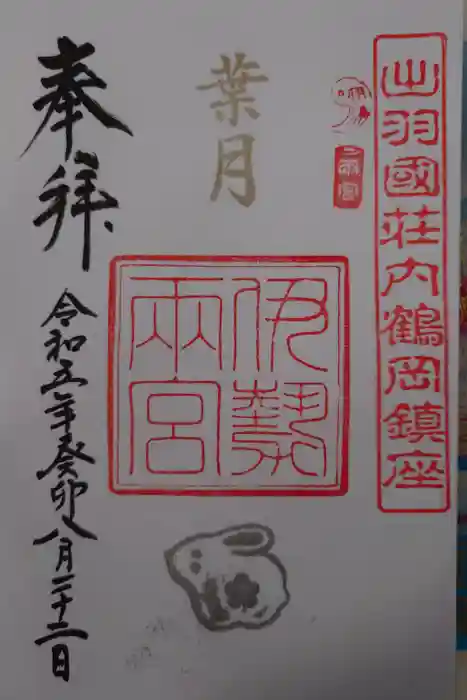 出羽國荘内鶴岡鎮座
両宮
葉月
伊勢
両宮
奉拝
令和五年癸卯八月二十二日